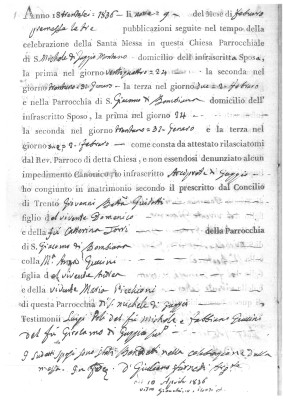 Anno 18trentasei = 1836 = li nove 9 del Mese di Febraro
premesse le tre pubblicazioni seguite nel tempo della
celebrazione della Santa Messa in questa Chiesa Parrocchiale
di S. Michele di Gaggio Montano domicilio dell'infrascritta Sposa,
la prima nel giorno ventiquattro = 24 la seconda nel
giorno trentuno = 31 Genaro la terza nel giorno due = 2 Febraro
e nella Parrocchia di S. Giacomo di Bombiana domicilio dell'
infrascritto Sposo, la prima nel giorno 24
la seconda nel giorno trentuno = 31 = Genaro e la terza nel
giorno due = 2 febraro come consta da attestato rilasciatomi
dal Rev. Parroco di detta Chiesa, e non essendosi denunziato alcun
impedimento Canonico, io infrascritto Arciprete di Gaggio
ho congiunto in matrimonio secondo il prescritto dal Concilio
di Trento Giovanni Guidotti
figlio del vivente Domenico
e della fu Catterina Torri della Parrocchia
di S. Giacomo di Bombiana
colla M.a
figlia del vivente Andrea
e della vivente Maria
di questa Parrocchia di S. Michele di Gaggio
Testimonii Luigi Poli del fu Michele e Fabbiano
del fu Girolamo di Gaggio
I Sudetti Sposi sono stati Benedetti nella celebrazione della
messa. In fede D. Giuliano
10 Aprile 1836